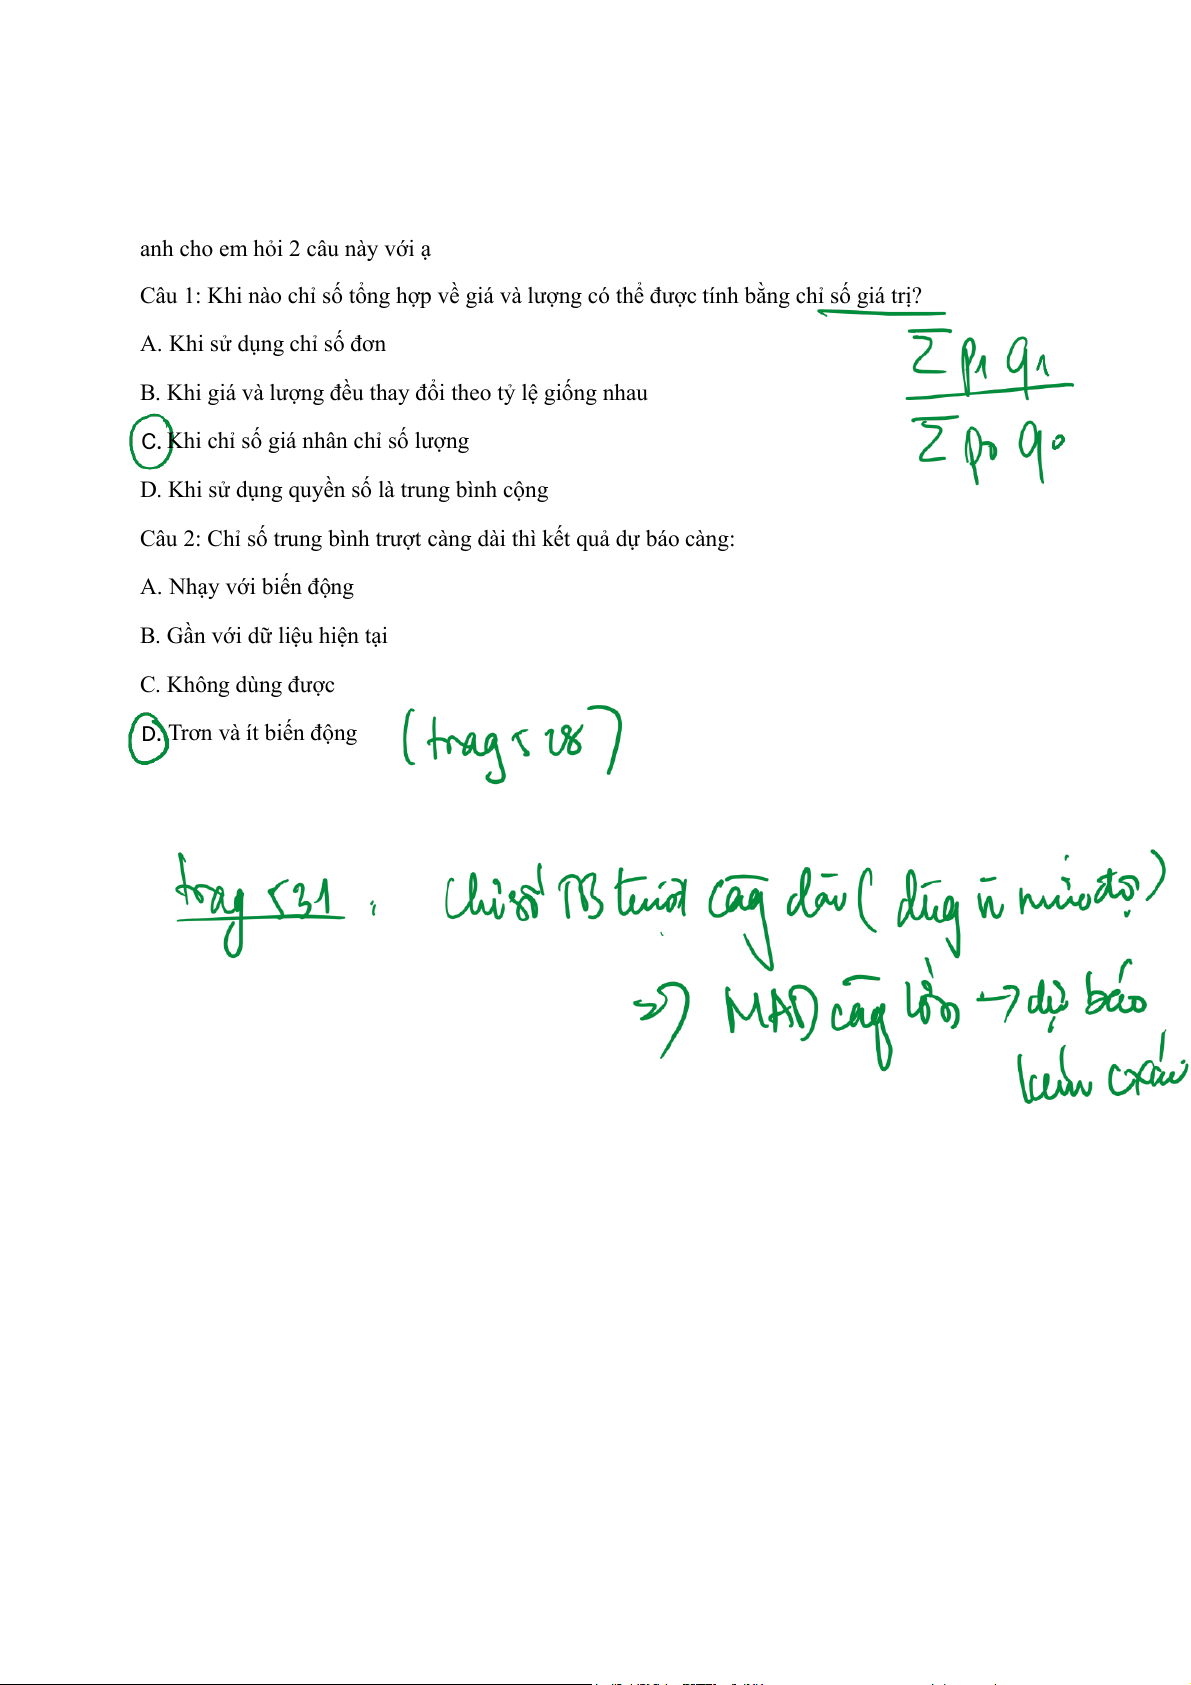 anh cho em hỏi 2 câu này với ạ
Câu 1: Khi nào chỉ số tổng hợp về giá và lượng có thể được tính bằng chỉ số giá trị?
A. Khi sử dụng chỉ số đơn
Σ p₁ q₁
B. Khi giá và lượng đều thay đổi theo tỷ lệ giống nhau
C. Khi chỉ số giá nhân chỉ số lượng
Σ p₀ q₀
D. Khi sử dụng quyền số là trung bình cộng
Câu 2: Chỉ số trung bình trượt càng dài thì kết quả dự báo càng:
A. Nhạy với biến động
B. Gần với dữ liệu hiện tại
C. Không dùng được
D. Trơn và ít biến động (trag 528)
trag 531 : Chỉ số TB trượt càg dài ( dùg n mức độ)
=> MAD càg lớn → dự báo
kém cxác